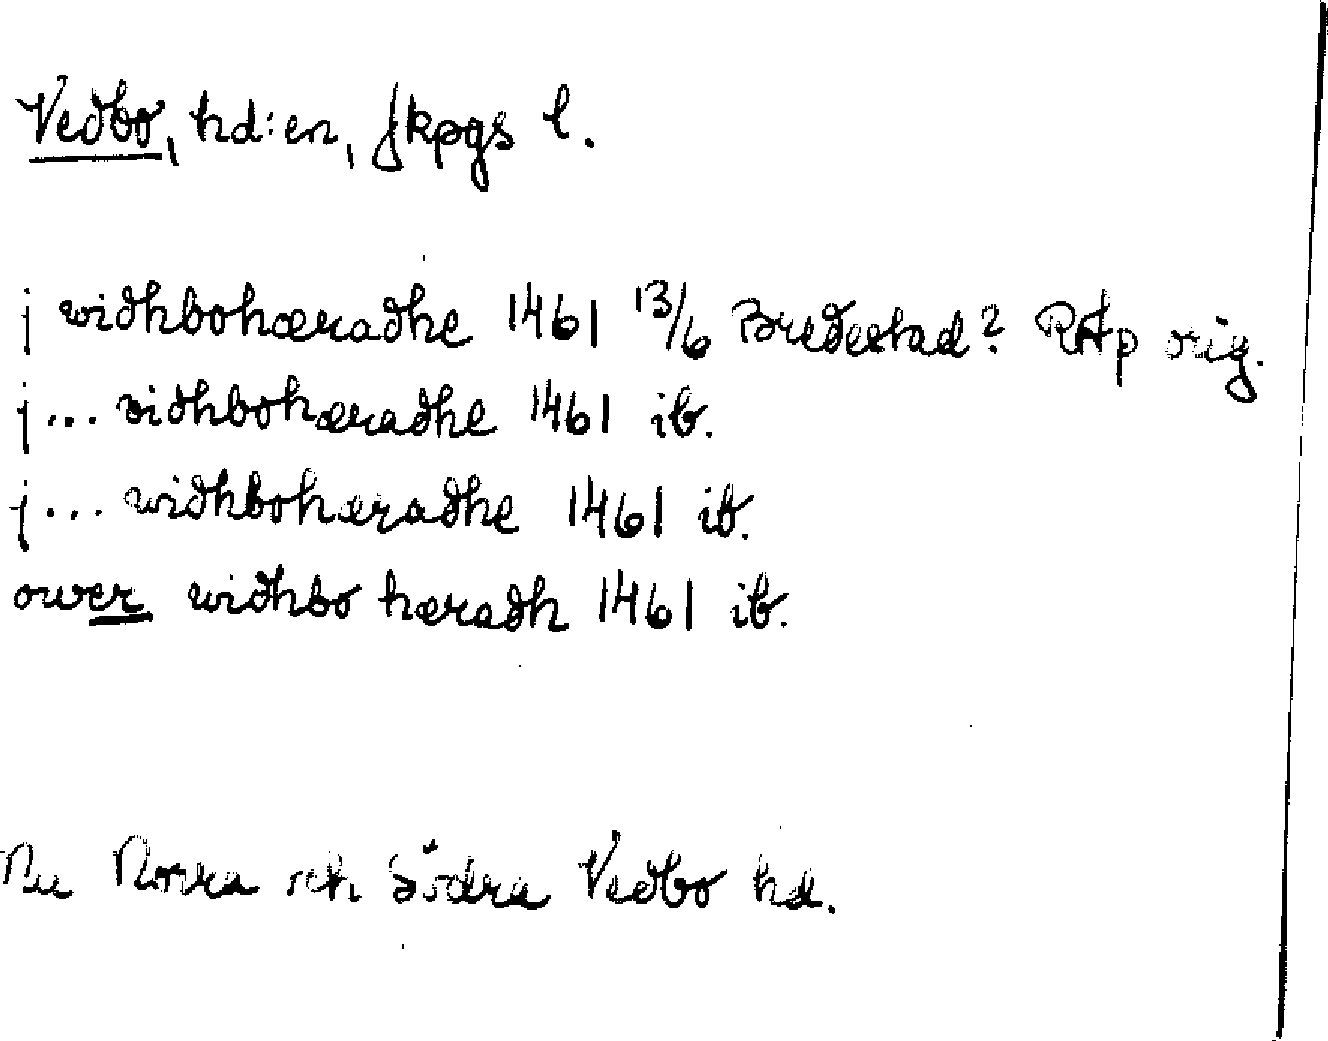 Vedbo, hd:en, Jkpgs l.
j widhbohæradhe 1461 13/6 Bredestad? RAp orig.
j... vidhbohæradhe 1461 ib.
j... widhbohæradhe 1461 ib.
ower widhbo hæradh 1461 ib.
Nu Norra och Södra Vedbo hd.